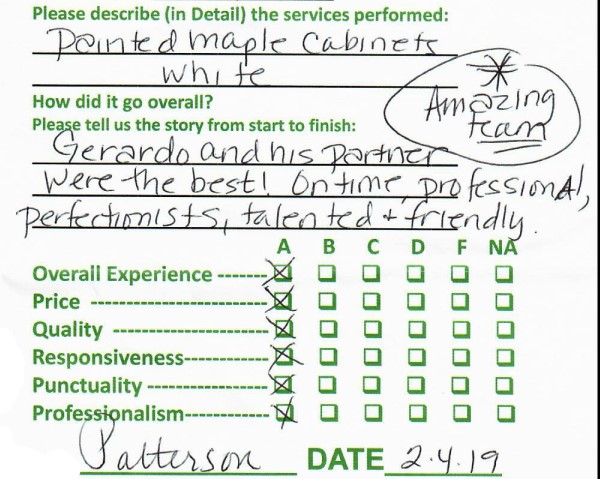 Please describe (in Detail) the services performed:
Painted maple cabinets
white
How did it go overall?
Please tell us the story from start to finish:
Amazing
team
Gerardo and his partner
were the best! On time, professional,
perfectionists, talented + friendly.
A B C D F NA
Overall Experience -------
Price --------------------
Quality -----------------
Responsiveness-----------
Punctuality --------------
Professionalism-----------
Patterson DATE 2.4.19